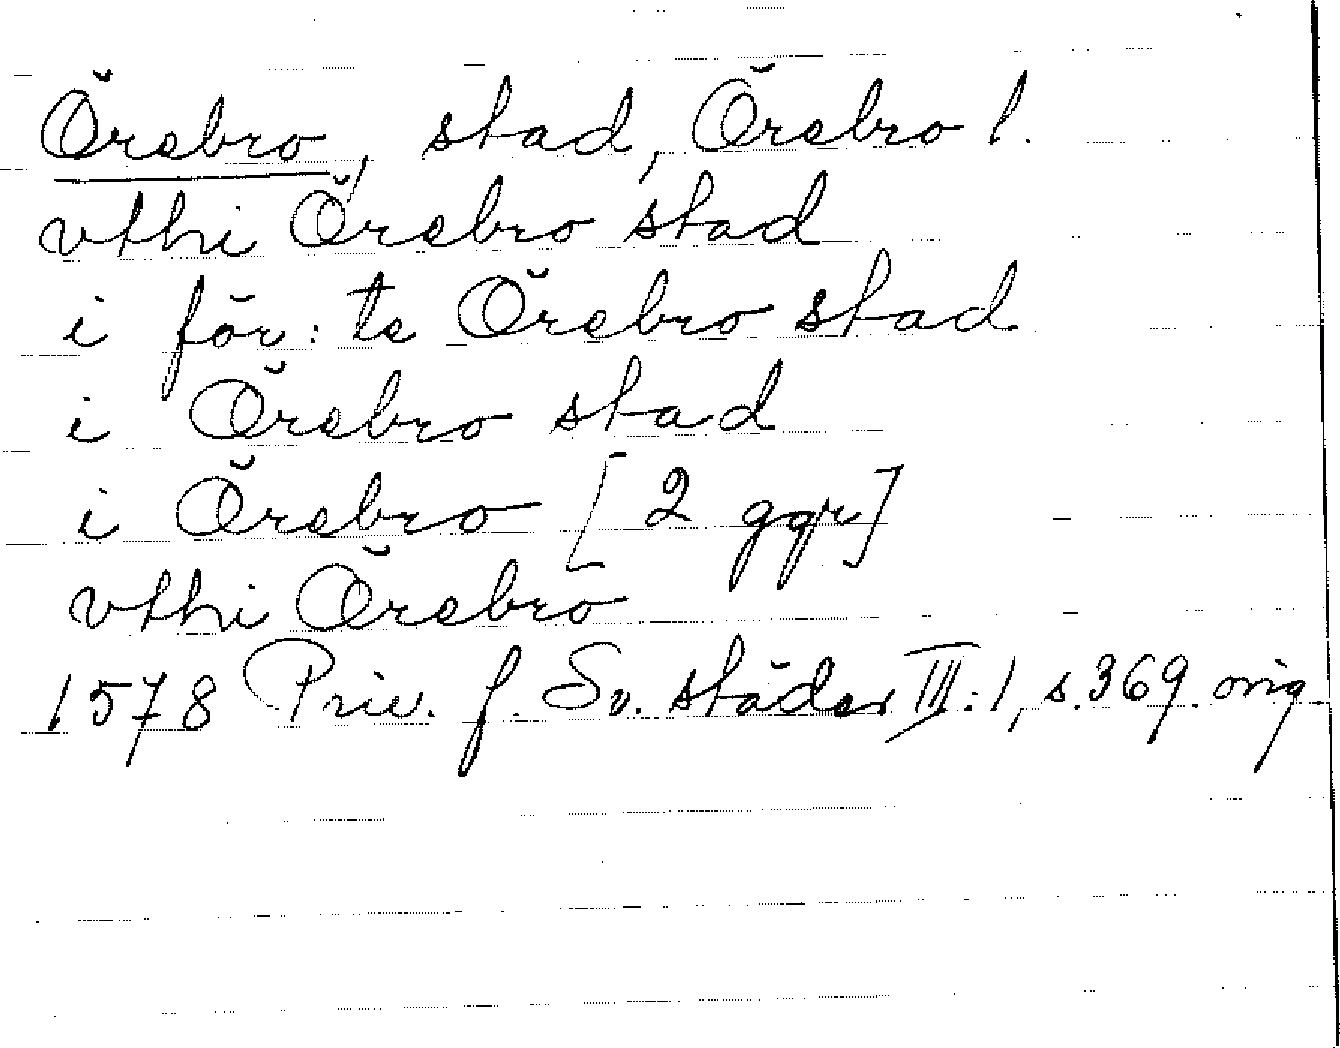 Örebro, stad, Örebro l.
vthi Örebro stad
i för: te Örebro stad
i Örebro stad
i Örebro [2 ggr]
vthi Örebro
1578 Priv. f. Sv. städer III:1, s.369. orig.